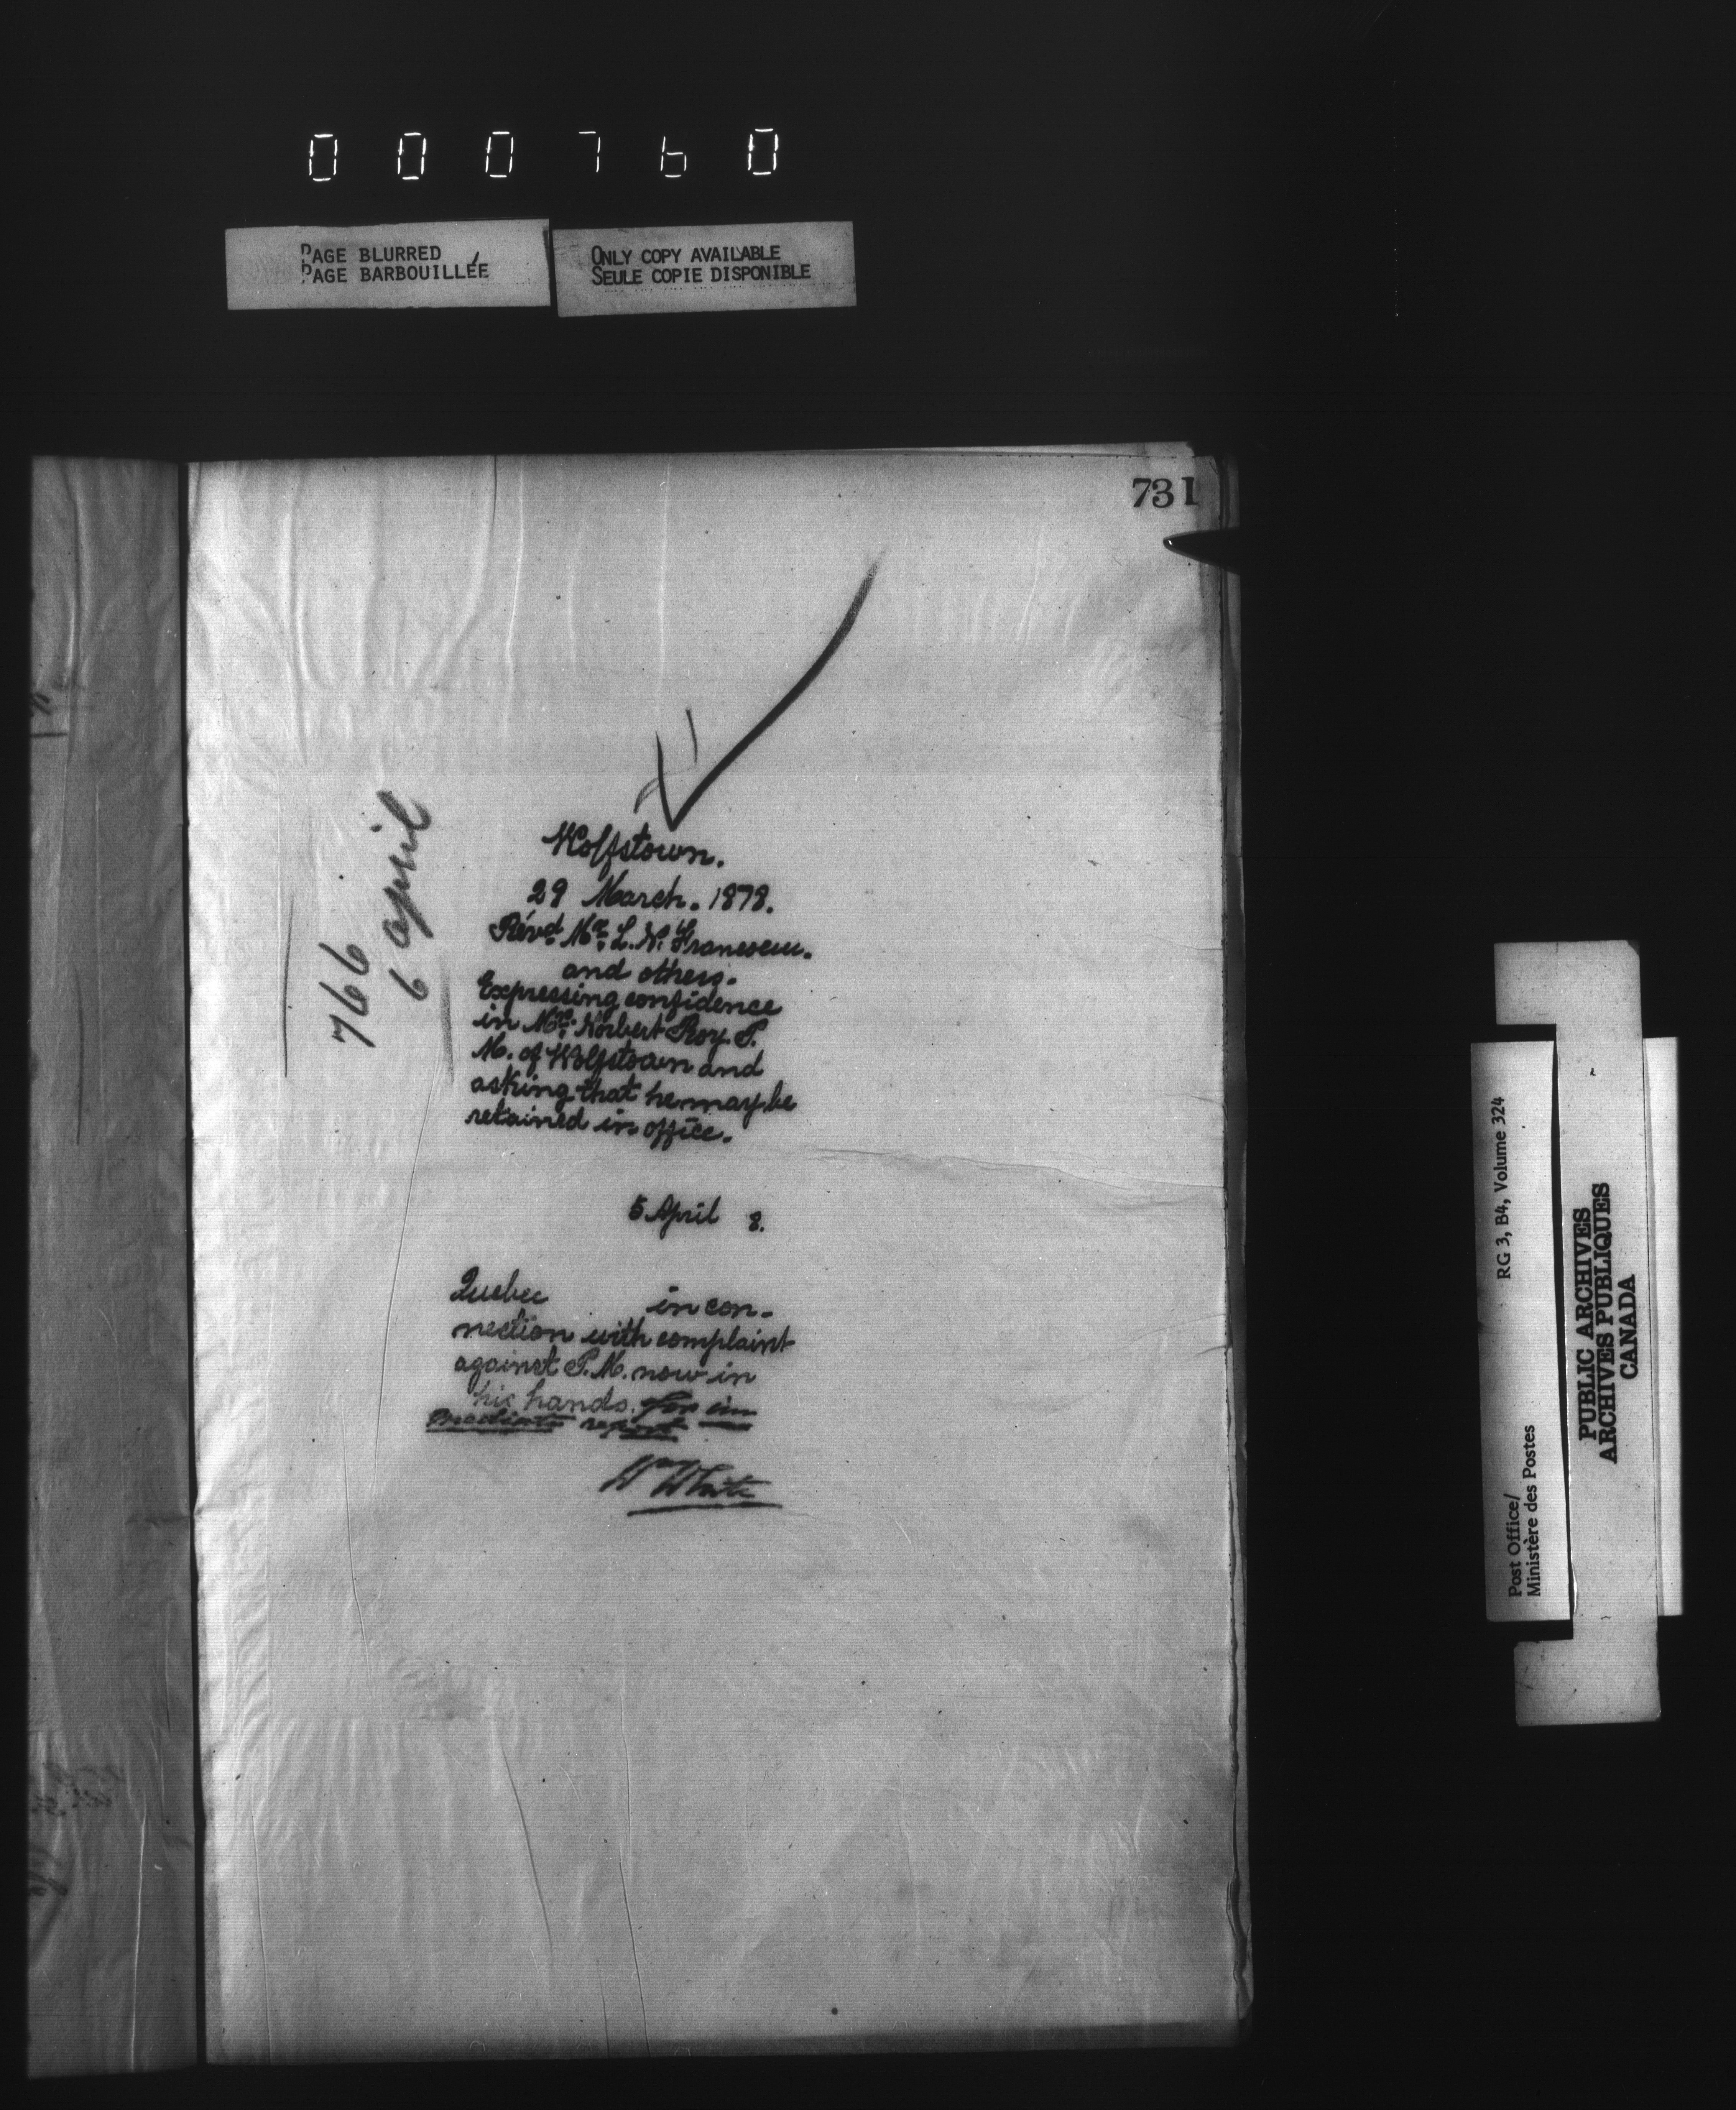 000760
PAGE BLURRED
PAGE BARBOUILLÉE
ONLY COPY AVAILABLE
SEULE COPIE DISPONIBLE
731
766
6 april
Wolfstown.
29 March. 1878.
Révd. Mr. L. N. Francoeur.
and others.
Expressing confidence
in Mr. Norbert Roy P.
M. of Wolfstown and
asking that he may be
retained in office.
5 April 8.
Quebec in con-
nection with complaint
against P.M. now in
his hands. for im
mediate report
Wm White
RG 3, B4, Volume 324
Post Office/
Ministère des Postes
PUBLIC ARCHIVES
ARCHIVES PUBLIQUES
CANADA